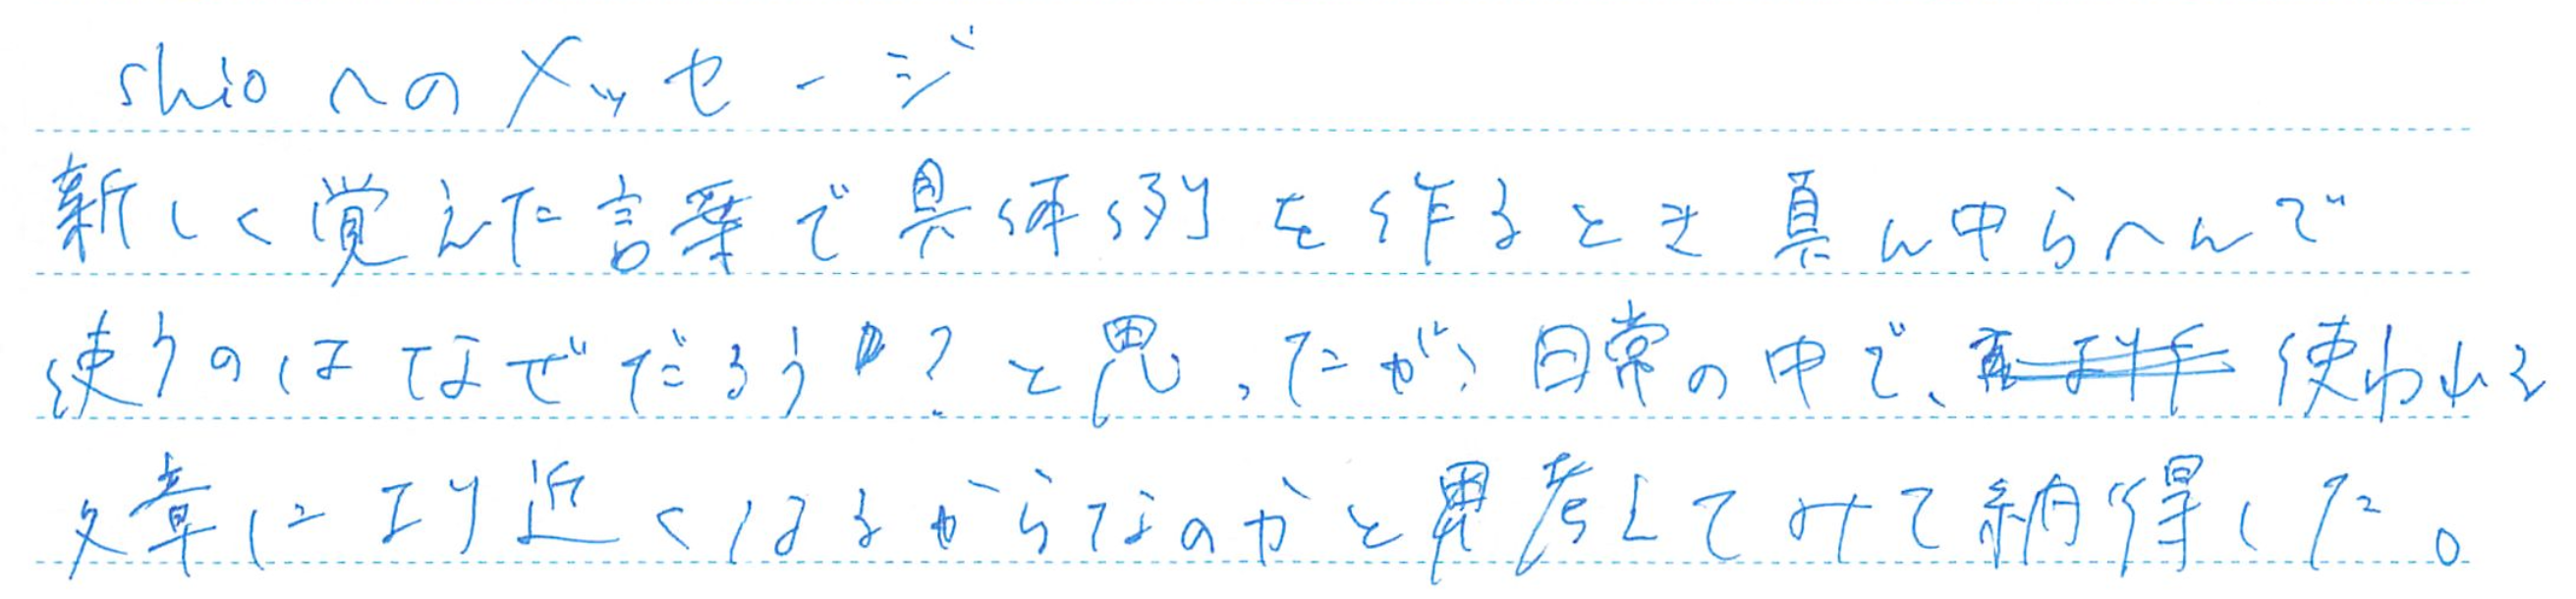 shioへのメッセージ
新しく覚えた言葉で具体例を作るとき真ん中らへんで
使うのはなぜだろう?と思ったが、日常の中で、使われる
文章により近くなるからなのかと思考してみて納得した。